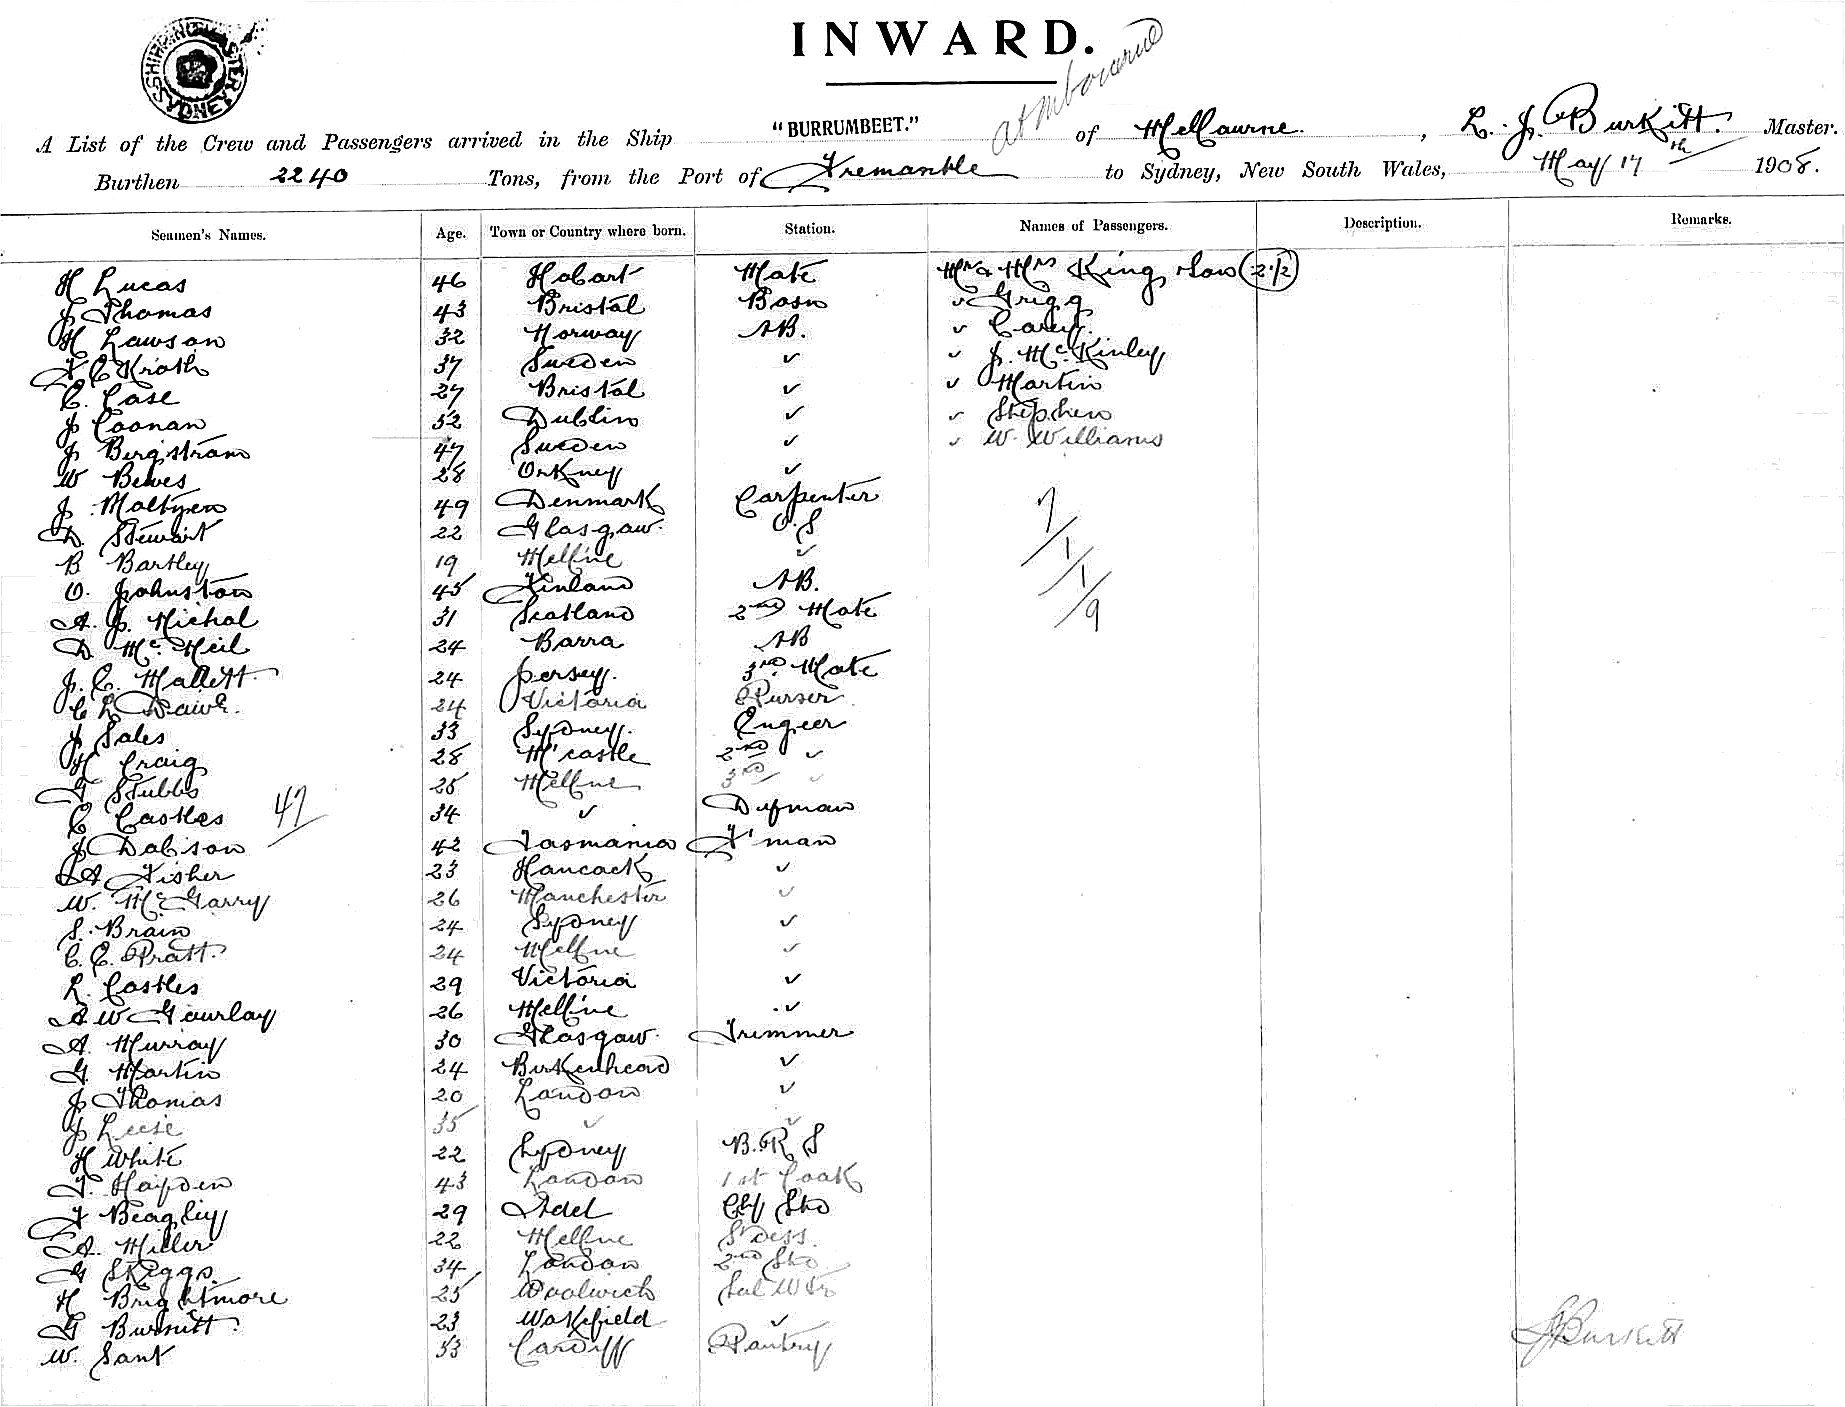 SHIPPING MASTER SYDNEY
INWARD.
at Mbourne
A List of the Crew and Passengers arrived in the Ship "BURRUMBEET." of Melbourne , L. J. Burkitt. Master.
Burthen 2240 Tons, from the Port of Fremantle to Sydney, New South Wales, May 17th 1908.
Seamen's Names. Age. Town or Country where born. Station. Names of Passengers. Description. Remarks.
H Lucas 46 Hobart Mate Mr & Mrs King & Son (2 1/2)
J Thomas 43 Bristol Bosn ✓ Grigg
H Lawson 32 Norway AB. ✓ Carey.
F C Kroth 37 Sweden ✓ ✓ J. McKinley
C. Case 27 Bristol ✓ ✓ Martin
J Coonan 52 Dublin ✓ ✓ Stephen
J Bergstrom 47 Sweden ✓ ✓ W. Williams
W Bewes 28 Orkney ✓
J. Moltzen 49 Denmark Carpenter
D. Stewart 22 Glasgow. O.S
B Bartley 19 Melbne ✓
O. Johnston 45 Finland AB.
A. J. Nichol 31 Scotland 2nd Mate
D McNeil 24 Barra AB
J. C. Mallett. 24 Jersey. 3rd Mate
C L Dawe. 24 Victoria Purser
J Sales 33 Sydney. Engeer
H Craig 28 N'castle 2nd ✓
G Stubbs 25 Melbne 3rd ✓
C Castles 34 ✓ Dkyman
J Dobson 42 Tasmania F'man
A Fisher 23 Hancock ✓
W. McGarry 26 Manchester ✓
S. Brain 24 Sydney ✓
C. E. Pratt. 24 Melbne ✓
L. Castles 29 Victoria ✓
A W Gourlay 26 Melbne ✓
A. Murray 30 Glasgow. Trimmer
G. Martin 24 Birkenhead ✓
J Thomas 20 London ✓
J Leese 35 ✓ ✓
H White 22 Sydney B.R S
T. Hayden 43 London 1st Cook
F Beagley 29 Adel Chf Std
A. Miller 22 Melbne S'dess.
G Skeggs. 34 London 2nd Std
H Brightmore 25 Woolwich Sal Wtr
G Burnitt. 23 Wakefield ✓
W. Sank 33 Cardiff Pantry
47
7/1/1/9
J Burkitt